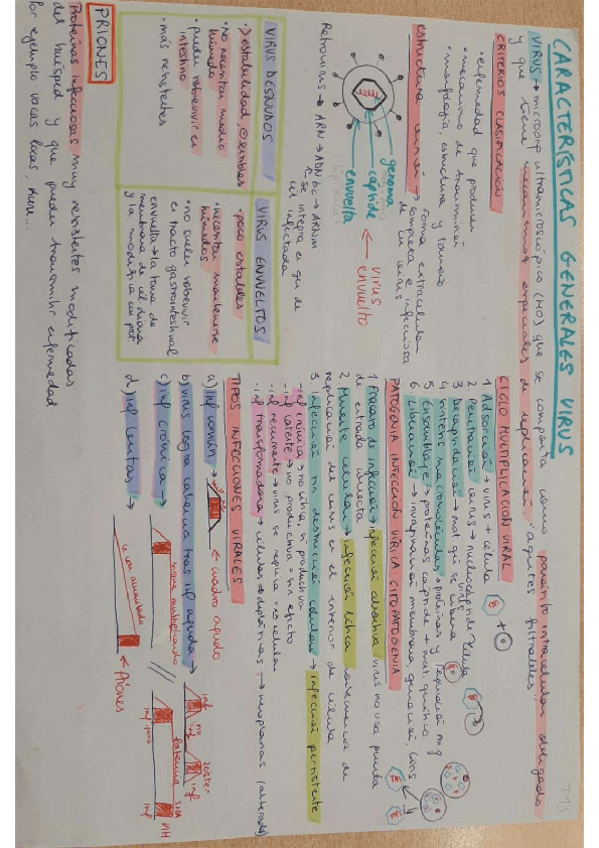 T13
CARACTERÍSTICAS GENERALES VIRUS
VIRUS → microorg ultramicroscópico (MO) que se comporta como parásito intracelular obligado
y que tiene mecanismos especiales de replicación "agentes filtrables"
CRITERIOS CLASIFICACIÓN
· enfermedad que producen
· mecanismo de transmisión
· morfología, estructura y tamaño
estructura → forma extracelular
completa e infecciosa
de un virus
genoma
cápside
envuelta
virus
envuelto
Retrovirus → ARN → ADN bc → ARNm
se integra en
cel infectada
VIRUS DESNUDOS
· > estabilidad
· no necesitan medio
húmedo
· pueden sobrevivir en
intestino
· más resistentes
VIRUS ENVUELTOS
· poco estables
· necesitan mantenerse
húmedos
· no suelen sobrevivir
en tracto gastrointestinal
envuelta → la toma de
membrana de cel diana
y la modifica con prot
PRIONES
Proteínas infecciosas muy resistentes modificadas
del huésped y que pueden transmitir enfermedad
for ejemplo vacas locas, kuru...
CICLO MULTIPLICACIÓN VIRAL
1 Adsorción → virus + célula
2. Penetración
3 Desnudación → mat
4 síntesis macromoléculas → proteínas y replicación mg
5 Ensamblaje → proteínas cápside + mat. genético
6 Liberación → invaginación membrana
PATOGENIA INFECCIÓN VÍRICA CITOPATOGENIA
1 Fracaso de infección → infección abortiva virus no usa puerta
de entrada correcta
2 Muerte celular → infección lítica
replicación del virus en el interior de célula
3 Infección sin destrucción celular → infección persistente
· inf crónica → no lítica, sí productiva
· inf latente → no productiva = sin efecto
· inf recurrente → virus se replica
· inf transformadora → células → neoplasias (alterada)
TIPOS INFECCIONES VIRALES
a) inf común → ← cuadro agudo
b) virus logra latencia tras inf aguda →
inf
no
inf
zoster
c) inf crónica →
sigue multiplicando
//
latencia
SIDA
VIH
inf
d) inf lentas →
se van acumulando
← Priones